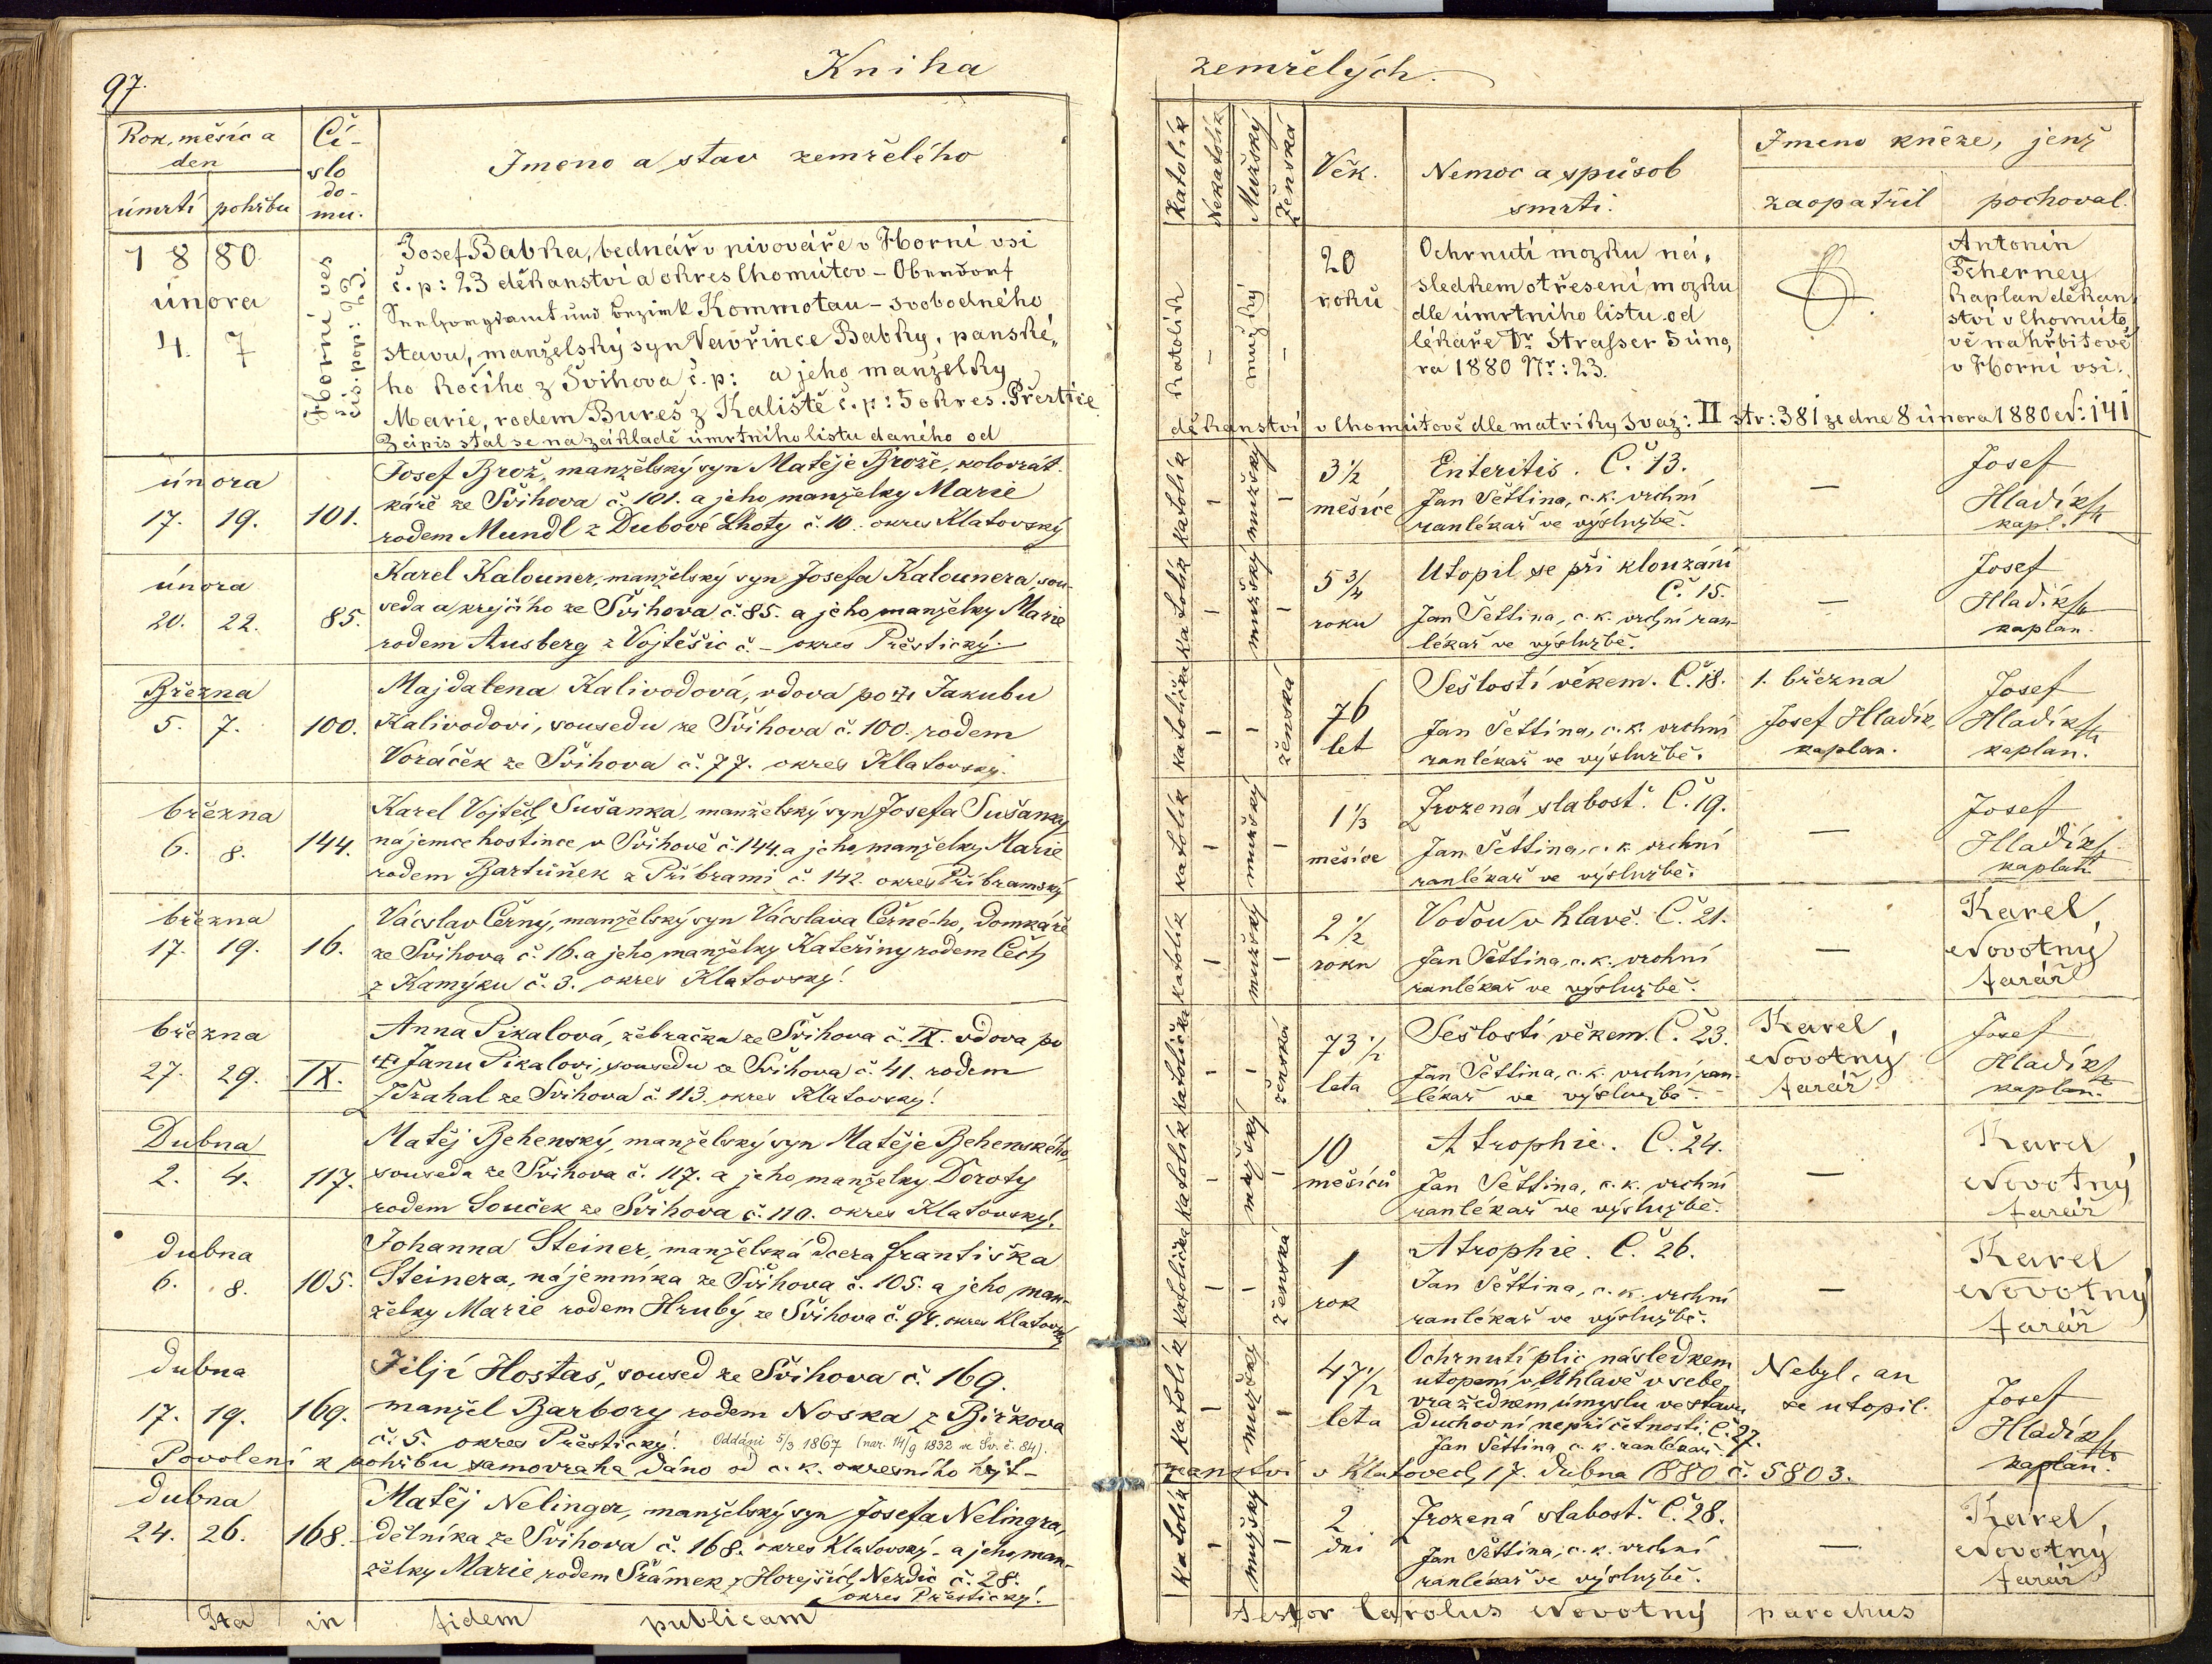 97.
Kniha
Rok, měsíc a
den
úmrtí pohřbu
Čí-
slo
do-
mu.
Jmeno a stav zemřelého
1 8 80
února
4. 7
Horní ves
čís. pop: 23.
Josef Babka, bednář v pivováře v Horní vsi
č. p: 23 děkanství a okres Chomútov - Oberdorf
Bezirk Kommotau - svobodného
stavu, manželský syn Vavřince Babky, panské„
ho kočího z Švihova č. p: a jeho manželky
Marie, rodem Bureš z Kaliště č. p: 5 okres. Přeštice
Zápis stal se na základě úmrtního listu daného od
února
17. 19. 101.
Josef Brož, manželský syn Matěje Brože, kolovrát-
káře ze Švihova č. 101. a jeho manželky Marie
rodem Mundl z Dubové Lhoty č. 10. okres Klatovský
února
20. 22. 85.
Karel Kalouner, manželský syn Josefa Kalounera sou-
seda a krejčího ze Švihova č. 85. a jeho manželky Marie
rodem Ausberg z Vojtěšic č. - okres Přeštický.
Března
5. 7. 100.
Majdalena Kalivodová, vdova po Jakubu
Kalivodovi, sousedu ze Švihova č. 100. rodem
Voráček ze Švihova č. 77. okres Klatovský.
března
6. 8. 144.
Karel Vojtěch Sušanka, manželský syn Josefa Sušanky
nájemce hostince v Švihově č. 144. a jeho manželky Marie
rodem Bartůněk z Příbrami č. 142. okres Příbramský
března
17. 19. 16.
Vácslav Černý, manželský syn Vácslava Černé-ho, domkáře
ze Švihova č. 16. a jeho manželky Kateřiny rodem Čech
z Kamýku č. 3. okres Klatovský!
března
27. 29. IX.
Anna Pikalová, žebračka ze Švihova č. IX. vdova po
Janu Pikalovi, sousedu ze Švihova č. 41. rodem
Zdrahal ze Švihova č. 113. okres Klatovský!
Dubna
2. 4. 117.
Matěj Behenský, manželský syn Matěje Behenského,
souseda ze Švihova č. 117. a jeho manželky Doroty
rodem Souček ze Švihova č. 110. okres Klatovský!
dubna
6. 8. 105.
Johanna Steiner, manželská dcera Františka
Steinera, nájemníka ze Švihova č. 105. a jeho man-
želky Marie rodem Hrubý ze Švihova č. 94. okres Klatovský
dubna
17. 19. 169.
Jiljí Hostaš, soused ze Švihova č. 169.
manžel Barbory rodem Noska z Bičkova
č. 5. okres Přeštický! Oddáni 5/3 1867 (nar. 14/9 1832 ve Šv. č. 84).
Povolení k pohřbu samovraha dáno od c. k. okresního hejt-
dubna
24. 26. 168.
Matěj Nelinger, manželský syn Josefa Nelingra,
dělníka ze Švihova č. 168. okres Klatovský - a jeho man-
želky Marie rodem Šrámek z Horejších Nezdic č. 28.
okres Přeštický!
Ita in fidem publicam
zemřelých.
Katolík
Nekatolík
Mužský
Ženská
Věk.
Nemoc a spůsob
smrti.
Jmeno kněze, jenž
zaopatřil pochoval.
katolík - mužský -
20
roků
Ochrnutí mozku ná„
sledkem otřesení mozku
dle úmrtního listu od
lékaře Dr Strasser 5 úno„
ra 1880 Nr: 23.
Antonín
Tcherney
kaplan děkan„
ství v Chomúto„
vě na hřbitově
v Horní vsi.
děkanství v Chomútově dle matriky svaz: II str: 381 ze dne 8 února 1880 N: 141
katolík - mužský -
3 1/2
měsíce
Enteritis. Č. 13.
Jan Settina, c. k. vrchní
ranlékař ve výslužbě.
—
Josef
Hladík
kapl.
katolík - mužský -
5 3/4
roku
Utopil se při klouzání
Č. 15.
Jan Settina, c. k. vrchní ran-
lékař ve výslužbě.
—
Josef
Hladík
kaplan.
katolička - - ženská
76
let
Sešlostí věkem. Č. 18.
Jan Settina, c. k. vrchní
ranlékař ve výslužbě.
1. března
Josef Hladík,
kaplan.
Josef
Hladík
kaplan.
katolík - mužský -
1 1/3
měsíce
Zrozená slabosť. Č. 19.
Jan Settina, c. k. vrchní
ranlékař ve výslužbě.
—
Josef
Hladík
kaplan
katolík - mužský -
2 1/2
roku
Vodou v hlavě. Č. 21.
Jan Settina, c. k. vrchní
ranlékař ve výslužbě.
—
Karel
Novotný
farář
katolička - - ženská
73 1/2
leta
Sešlostí věkem. Č. 23.
Jan Settina, c. k. vrchní ran-
lékař ve výslužbě.
Karel
Novotný
farář
Josef
Hladík
kaplan.
katolík - mužský -
10
měsíců
Atrophie. Č. 24.
Jan Settina, c. k. vrchní
ranlékař ve výslužbě.
—
Karel
Novotný
farář
katolička - - ženská
1
rok
Atrophie. Č. 26.
Jan Settina, c. k. vrchní
ranlékař ve výslužbě.
—
Karel
Novotný
farář
katolík - mužský -
47 1/2
leta
Ochrnutí plic následkem
utopení v Úhlavě v sebe
vražedném úmyslu ve stavu
duchovní nepříčetnosti. Č. 27.
Jan Settina c. k. ranlékař.
Nebyl, an
se utopil.
Josef
Hladík
kaplan.
manství v Klatovech, 17. dubna 1880 č. 5803.
katolík - mužský -
2
dni
Zrozená slabosť. Č. 28.
Jan Settina, c. k. vrchní
ranlékař ve výslužbě.
—
Karel
Novotný
farář
Testor Carolus Novotný parochus